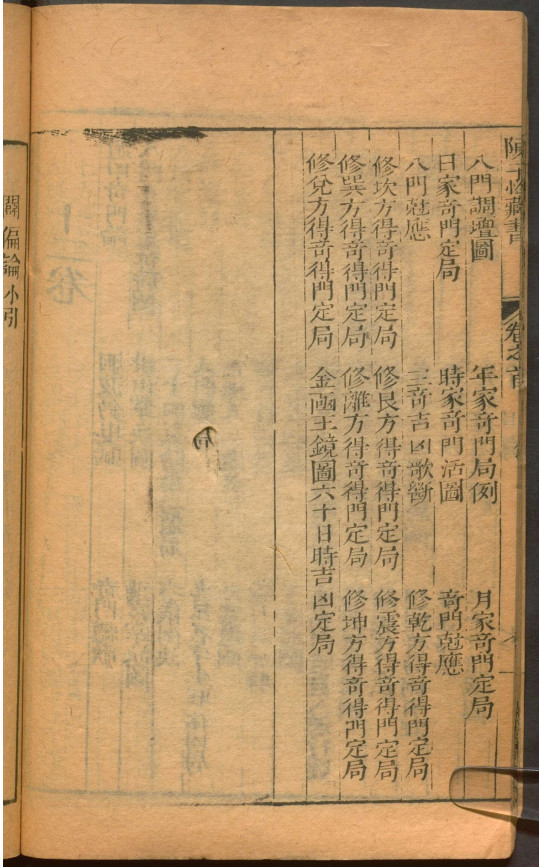 陳子性藏書
卷之首
八門調壇圖 年家奇門局例 月家奇門定局
日家奇門定局 時家奇門活圖 奇門尅應
八門尅應 三奇吉凶歌斷 修乾方得奇得門定局
修坎方得奇得門定局 修艮方得奇得門定局 修震方得奇得門定局
修巽方得奇得門定局 修離方得奇得門定局 修坤方得奇得門定局
修兌方得奇得門定局 金凾玉鏡圖六十日時吉凶定局
闢偏論小引